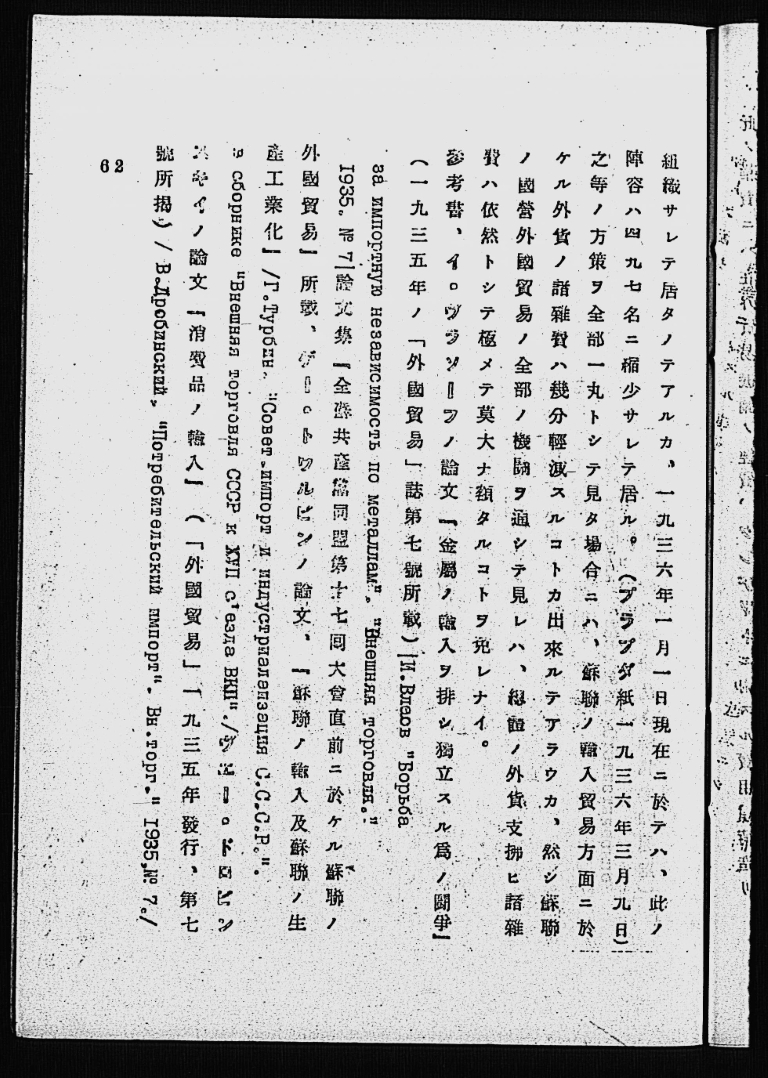 組織サレテ居タノテアルカ、一九三六年一月一日現在ニ於テハ、此ノ
陣容ハ四九七名ニ縮少サレテ居ル。(プラブダ紙一九三六年三月九日)
之等ノ方策ヲ全部一丸トシテ見タ場合ニハ、蘇聯ノ輸入貿易方面ニ於
ケル外貨ノ諸雜費ハ幾分輕減スルコトカ出來ルテアラウカ、然シ蘇聯
ノ國營外國貿易ノ全部ノ機關ヲ通シテ見レハ、總體ノ外貨支拂ヒ諸雜
費ハ依然トシテ極メテ莫大ナ額タルコトヲ免レナイ。
參考書、イ。ヴラソーフノ論文「金屬ノ輸入ヲ排シ獨立スル爲ノ鬪爭」
(一九三五年ノ「外國貿易」誌第七號所載)|И.Власов "Борьба
за импортную независимость по металлам". "Внешняя торговля."
1935. № 7|論文集「全聯共產黨同盟第十七回大會直前ニ於ケル蘇聯ノ
外國貿易」所載、ゲー。トウルビンノ論文、「蘇聯ノ輸入及蘇聯ノ生
產工業化」/Г.Турбин. "Совет.импорт и индустриализация С.С.С.Р.".
в сборнике "Внешняя торговля СССР к ХУП с'езда ВКП"./ヴエー。ドロビン
スキイノ論文「消費品ノ輸入」(「外國貿易」一九三五年發行、第七
號所揭)/В.Дробинский. "Потребительский импорт". Вн.торг." 1935,№ 7./
62